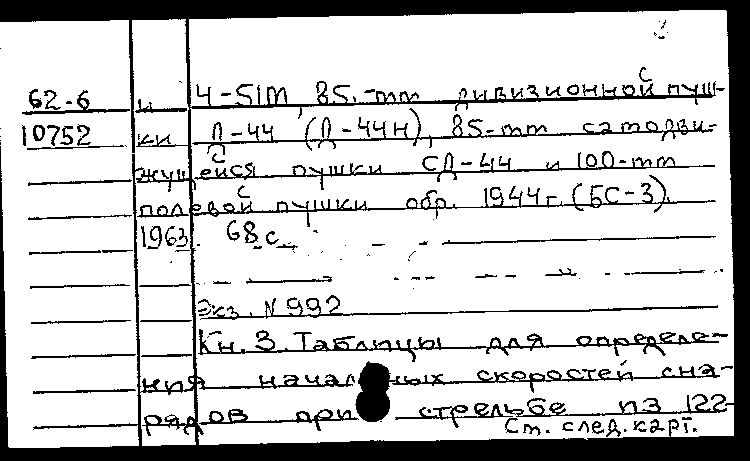 62-6 и 4-51М, 85.-мм дивизионной пуш-
10752 ки Д-44 (Д-44Н), 85-мм самодви-
жущейся пушки СД-44 и 100-мм
полевой пушки обр. 1944г. (БС-3).
1963. 68 с.
Экз. N 992
Кн. 3. Таблицы для определе-
ния начальных скоростей сна-
рядов при стрельбе из 122-
См. след. карт.